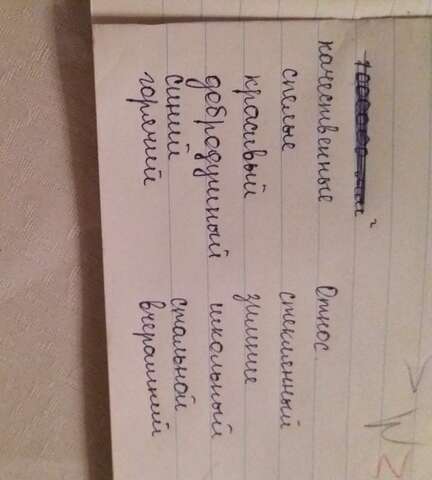 качественные Относ.
спелые стеклянный
красивый зимние
добродушный школьный
синий стальной
горячий вчерашний